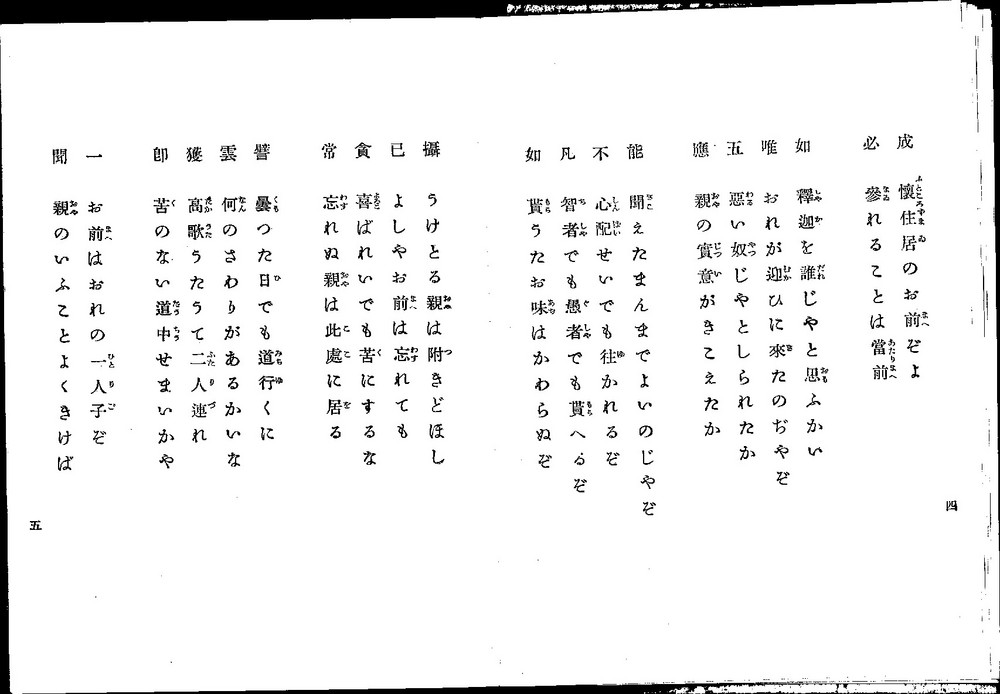 成 懷住居のお前ぞよ
必 參れることは當前
如 釋迦を誰じやと思ふかい
唯 おれが迎ひに來たのぢやぞ
五 惡い奴じやとしられたか
應 親の實意がきこえたか
能 聞えたまんまでよいのじやぞ
不 心配せいでも往かれるぞ
凡 智者でも愚者でも貰へるぞ
如 貰うたお味はかわらぬぞ
四
攝 うけとる親は附きどほし
已 よしやお前は忘れても
貪 喜ばれいでも苦にするな
常 忘れぬ親は此處に居る
譬 曇つた日でも道行くに
雲 何のさわりがあるかいな
獲 高歌うたうて二人連れ
卽 苦のない道中せまいかや
一 お前はおれの一人子ぞ
聞 親のいふことよくきけば
五